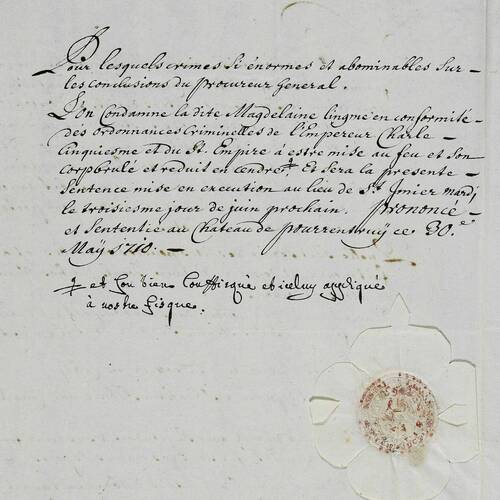 Pour lesquels crimes si énormes et abominables Sur
les conclusions du Procureur General.
L'on Condamne la dite Magdelaine Lingme en conformité
des ordonnances Criminelles de l'Empereur Charle
Cinquiesme et du St. Empire à estre mise au feu et son
corp brulé et reduit en cendre ‡ Et sera la presente
Sentence mise en execution au lieu de St. Imier mardj
le troisiesme jour de juin prochain. Prononcé
et Sentencié au Chateau de pourrentruÿ ce 30.e
Maÿ 1710.
‡ et son bien Confisqué et iceluy appliqué
à nostre fisque.